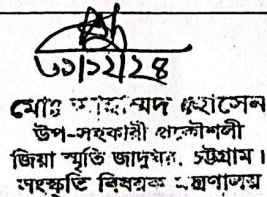 ৩১/১২/২৪
মোঃ মোহাম্মদ হোসেন
উপ-সহকারী প্রকৌশলী
জিয়া স্মৃতি জাদুঘর, চট্টগ্রাম।
সংস্কৃতি বিষয়ক মন্ত্রণালয়